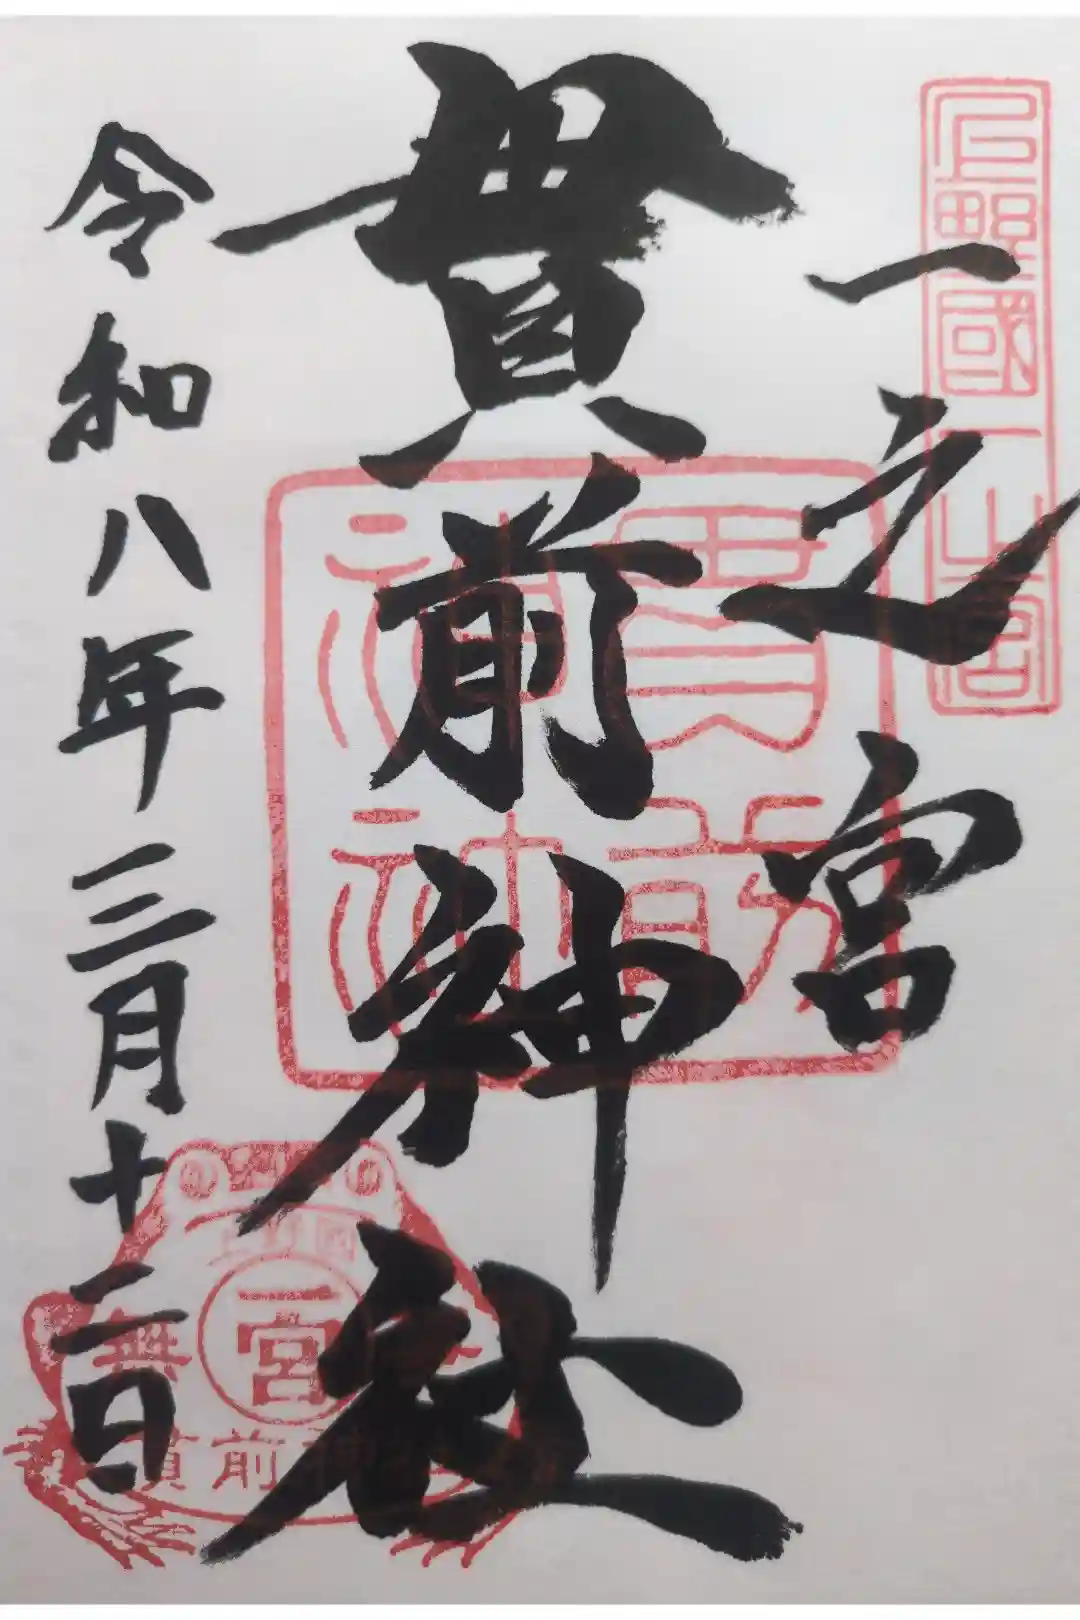 上野國一之宮
一之宮
貫前神社
貫前
神社
令和八年三月十二日
上野國
一宮
無
貫前神